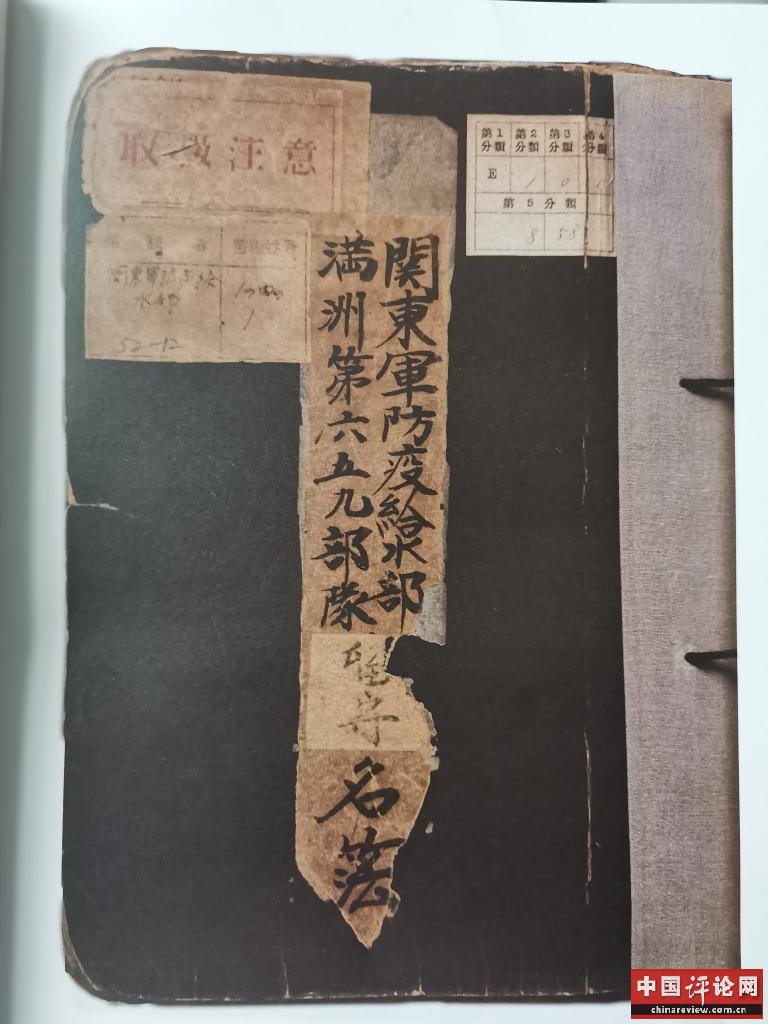 取扱注意
関東軍防疫給
水部
52-12
第1 第2 第3 第4
分類 分類 分類 分類
E 1 0
第5分類
8 58
関東軍防疫給水部
満洲第六五九部隊
留守名簿
中国评论网
chinareview.com